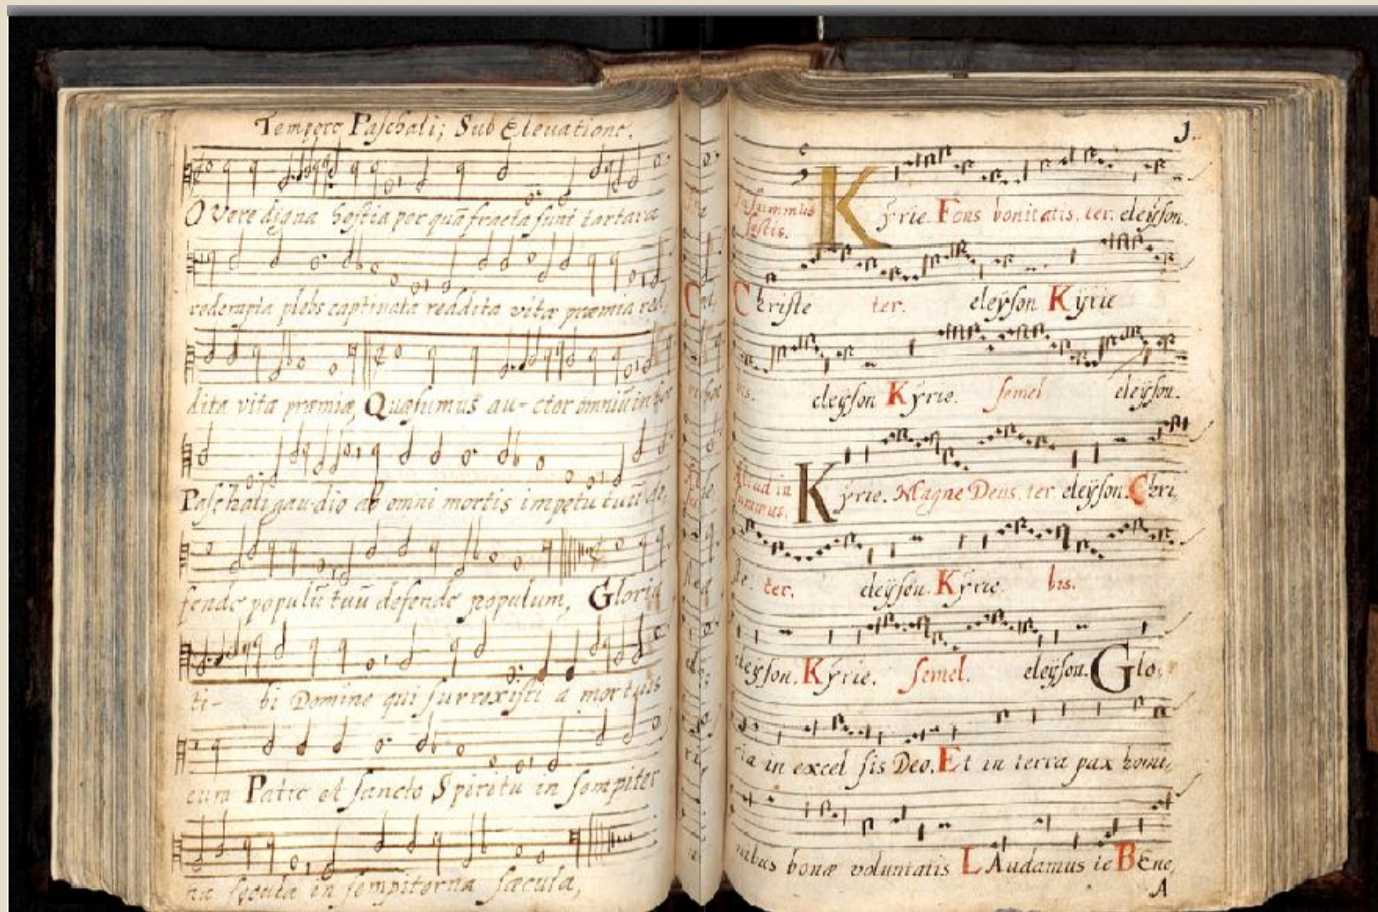 Tempore Paschali; Sub Elevatione.
O Vere digna hostia per quã fracta sunt tartara
redempta plebs captivata reddita vitæ præmia red,
dita vitæ præmia, Quæsumus au-ctor omniũ in hoc
Paschali gau-dio ab omni mortis impetu tuũ de,
fende populũ tuũ defende populum, Gloria
ti- bi Domine qui surrexisti a mortuis
cum Patre et sancto Spiritu in sempiter
na sęcula in sempiterna sæcula,
1.
In summis festis.
Kÿrie. Fons bonitatis. ter. eleÿson.
Christe ter. eleÿson Kÿrie
eleÿson Kÿrie. semel eleÿson.
Aliud in
Kÿrie. Magne Deus. ter eleÿson. Chri,
ste. ter. eleÿson. Kÿrie bis.
eleÿson. Kÿrie. semel. eleÿson. Glo,
ria in excel sis Deo. Et in terra pax homi,
nibus bonæ voluntatis LAudamus te BEne,
A